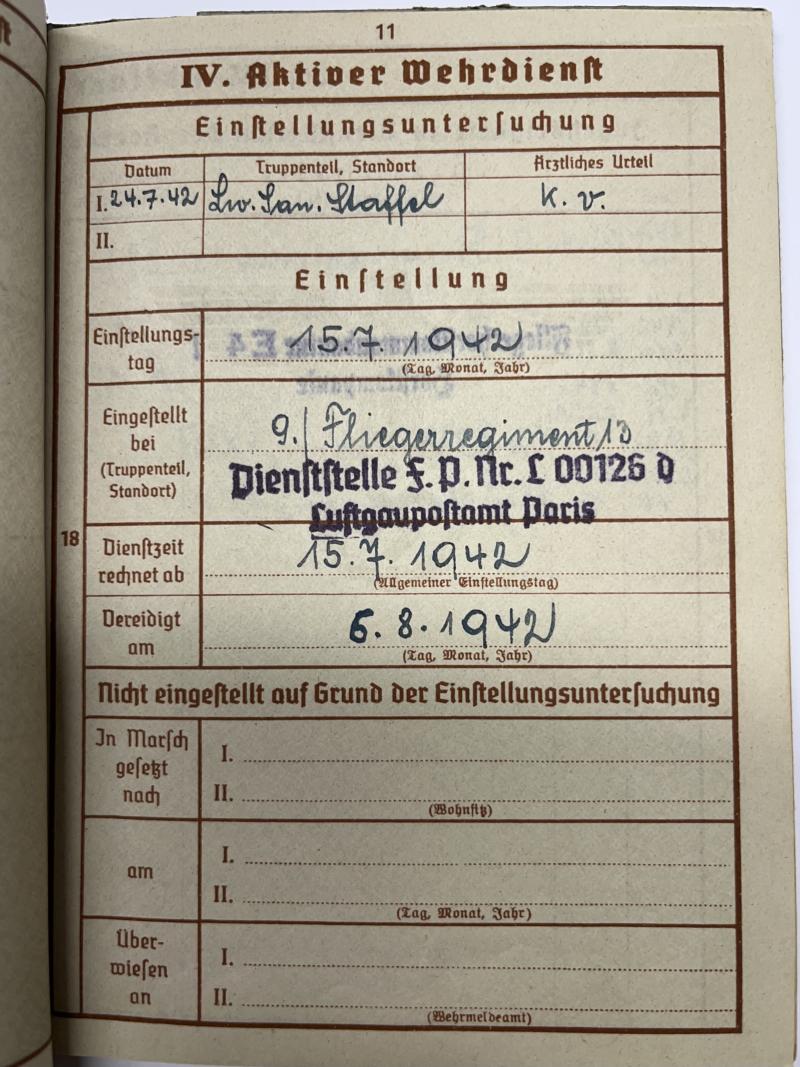 11
IV. Aktiver Wehrdienst
Einstellungsuntersuchung
Datum Truppenteil, Standort Ärztliches Urteil
I. 24.7.42 Lw. San. Staffel k. v.
II.
Einstellung
Einstellungs-
tag
15.7. 1942
(Tag, Monat, Jahr)
Eingestellt
bei
(Truppenteil,
Standort)
9./Fliegerregiment 13
Dienststelle F.P.Nr. L 00126 D
Luftgaupostamt Paris
18
Dienstzeit
rechnet ab
15.7. 1942
(Allgemeiner Einstellungstag)
Vereidigt
am
6. 8. 1942
(Tag, Monat, Jahr)
Nicht eingestellt auf Grund der Einstellungsuntersuchung
In Marsch
gesetzt
nach
I.
II.
(Wohnsitz)
am
I.
II.
(Tag, Monat, Jahr)
Über-
wiesen
an
I.
II.
(Wehrmeldeamt)